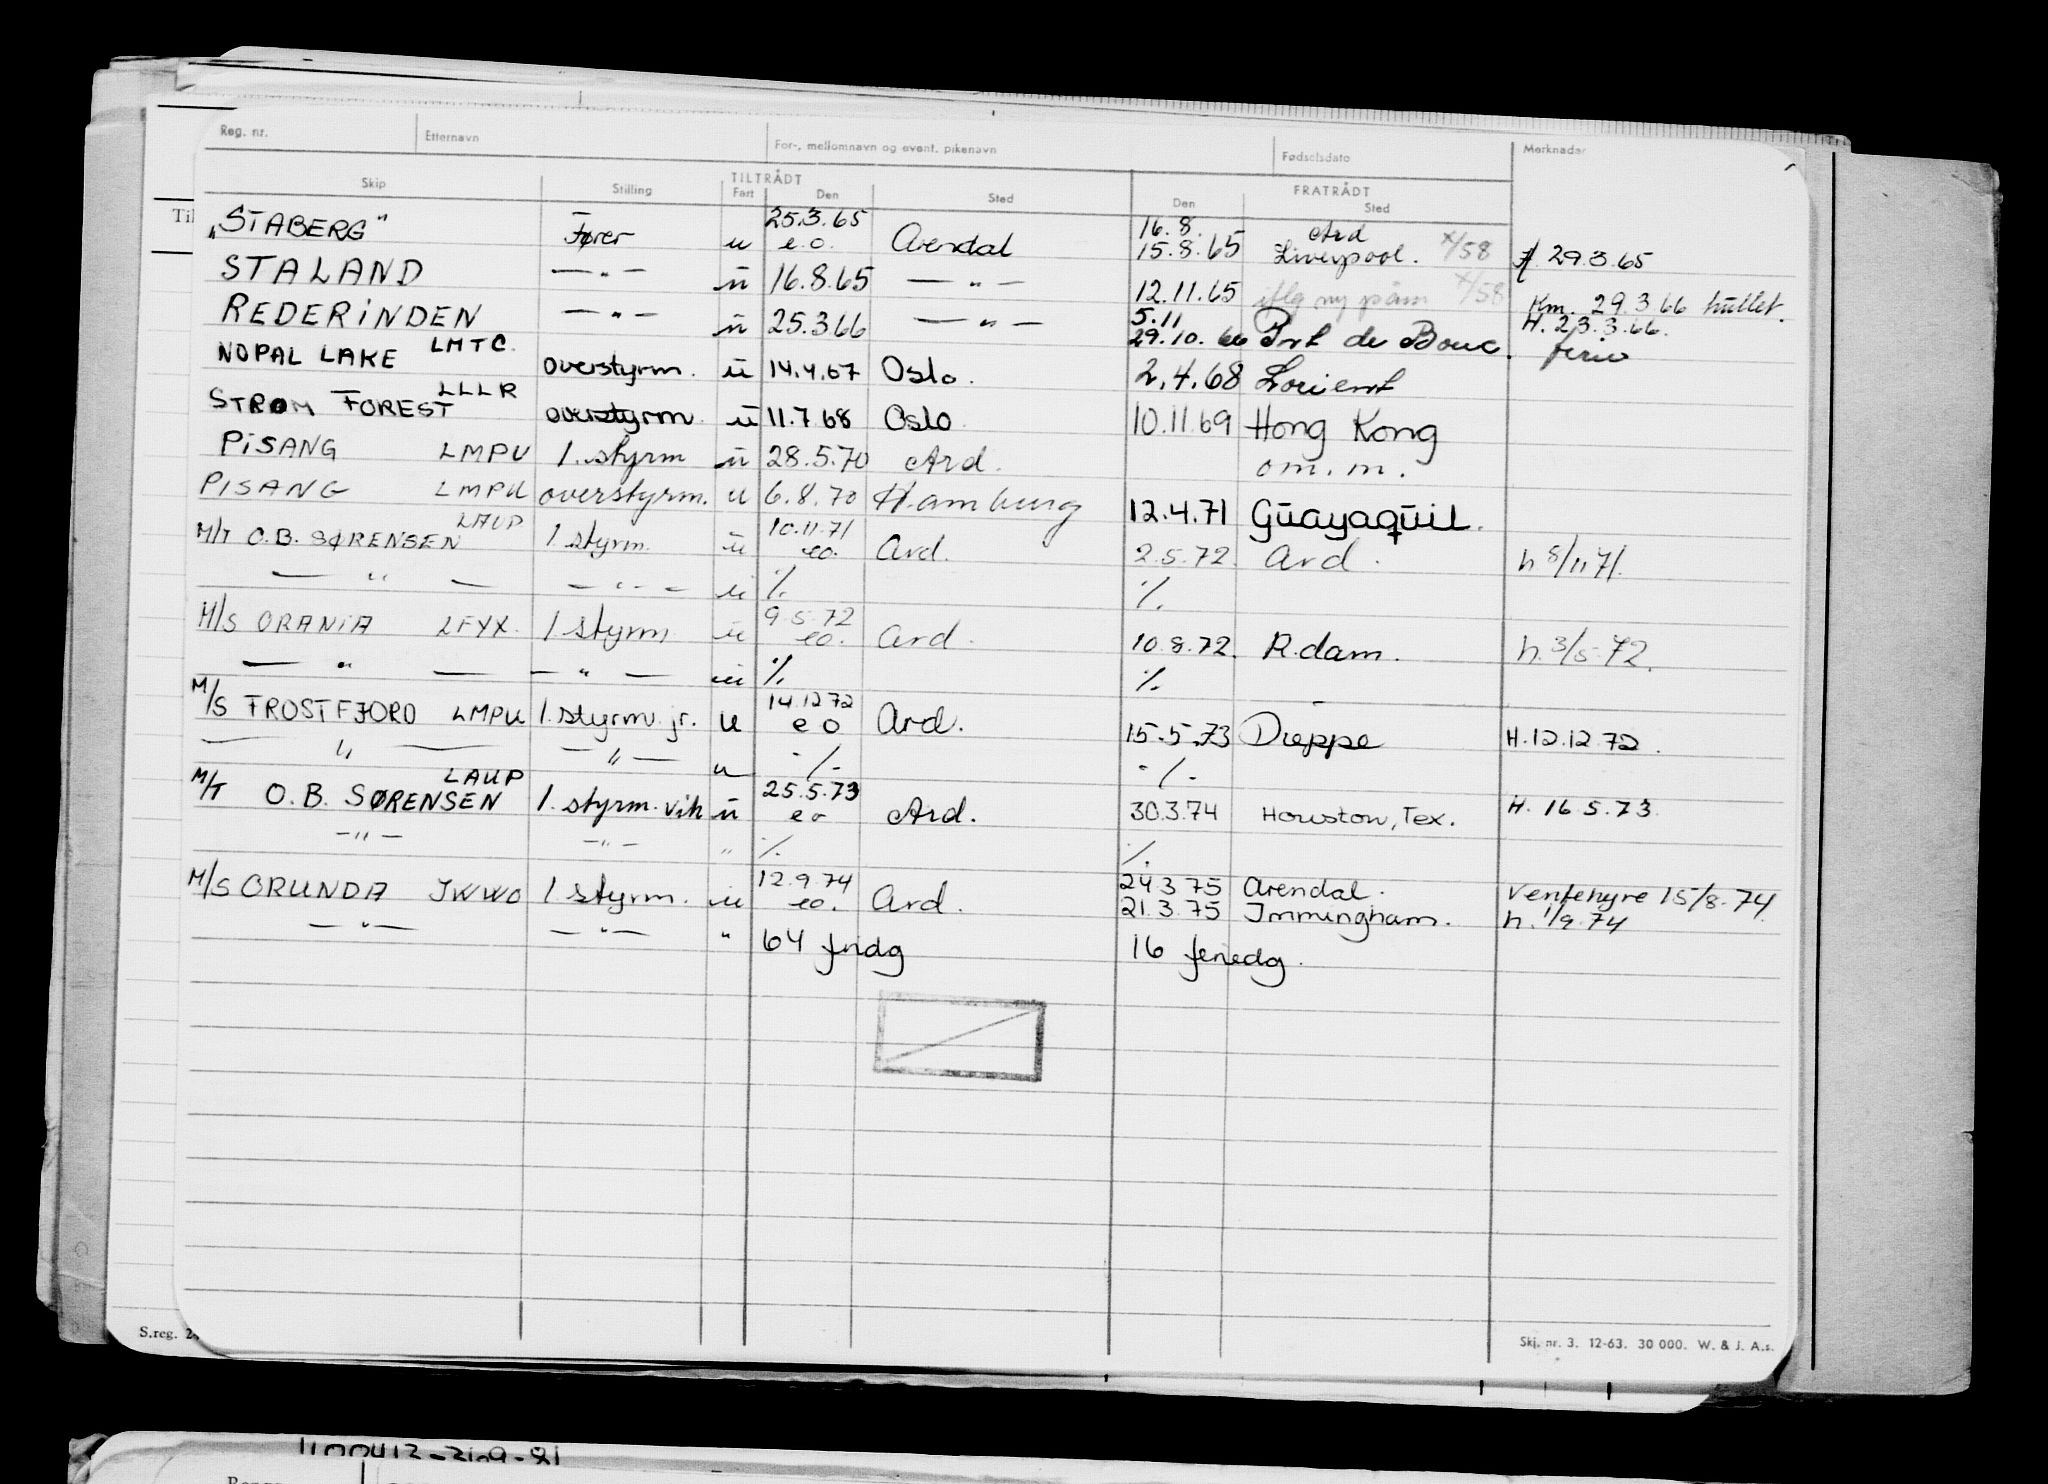 Reg. nr. Etternavn For-, mellomnavn og event. pikenavn Fødselsdato Merknader
Skip Stilling TILTRÅDT Fart Den Sted FRATRÅDT Den Sted
Til
"STABERG" Fører u 25.3.65 e.o. Arendal 16.8. 15.8.65 Ard Liverpool. x/58 29.3.65
STALAND — " — u 16.8.65 — " — 12.11.65 iflg ny påm x/58 Km. 29.3.66 hullet.
REDERINDEN — " — u 25.3.66 — " — 5.11 29.10.66 Port de Bouc. H. 23.3.66. ferie
NOPAL LAKE LMTC overstyrm. u 14.4.67 Oslo. 2.4.68 Lorient
STROM FOREST LLLR overstyrm. u 11.7.68 Oslo 10.11.69 Hong Kong
PISANG LMPU 1. styrm u 28.5.70 Ard. om.m.
PISANG LMPU overstyrm. u 6.8.70 Hamburg 12.4.71 Guayaquil.
M/T O.B. SØRENSEN LAUP 1 styrm. u 10.11.71 eo. Ard. 2.5.72. Ard. h 8/11 71.
— " — — " — u % %
M/S ORANIA LFYX. 1 styrm u 9.5.72 eo. Ard. 10.8.72. R.dam. h. 3/5-72.
— " — — " — u % %
M/S FROSTFJORD LMPU 1. styrm. jr. u 14.12.72 eo Ard. 15.5.73 Dieppe H.12.12.72.
— " — — " — u -/- -/-
M/T O.B. SØRENSEN LAUP 1. styrm. vik u 25.5.73 eo Ard. 30.3.74 Houston, Tex. H. 16.5.73.
— " — — " — " % %
M/S ORUNDA JWWO 1 styrm. u 12.9.74 eo. Ard. 24.3.75 Arendal. Ventehyre 15/8-74
21.3.75 Immingham. h. 1/9.74
— " — — " — " 64 fridg 16 feriedg.
S.reg. 2
Skj. nr. 3. 12-63. 30 000. W. & J. A.s.